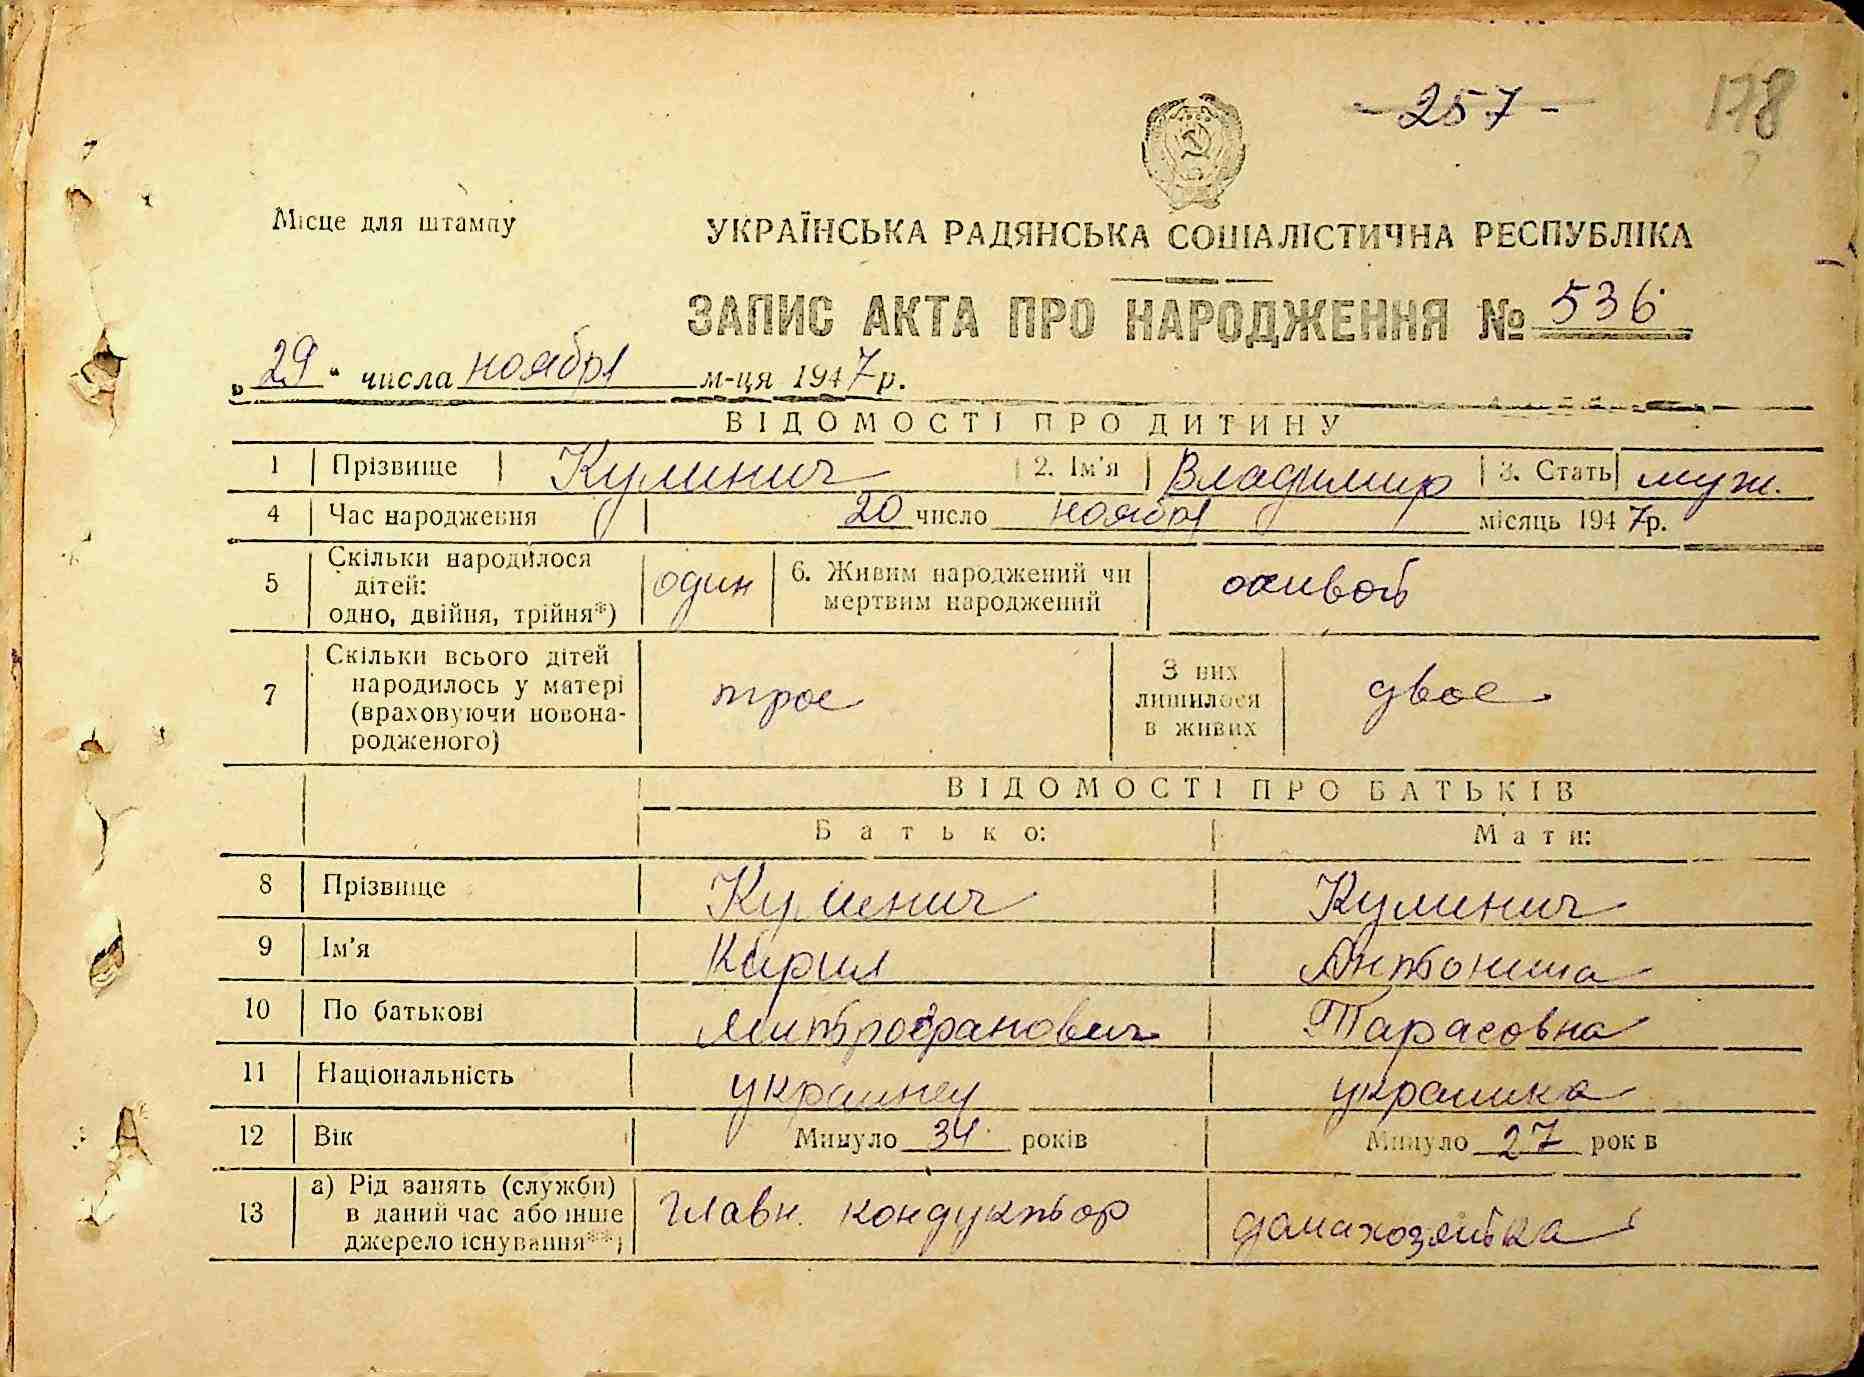 - 257 -
178
Місце для штампу
УКРАЇНСЬКА РАДЯНСЬКА СОЦІАЛІСТИЧНА РЕСПУБЛІКА
ЗАПИС АКТА ПРО НАРОДЖЕННЯ № 536
„29“ числа ноября м-ця 1947 р.
ВІДОМОСТІ ПРО ДИТИНУ
1 Прізвище Кулинич 2. Ім'я Владимир 3. Стать муж.
4 Час народження 20 число ноября місяць 1947 р.
5 Скільки народилося дітей: одно, двійня, трійня*) один 6. Живим народжений чи мертвим народжений живой
7 Скільки всього дітей народилось у матері (враховуючи новонародженого) трое З них лишилося в живих двое
ВІДОМОСТІ ПРО БАТЬКІВ
Батько: Мати:
8 Прізвище Кулинич Кулинич
9 Ім'я Кирил Антонина
10 По батькові Митрофанович Тарасовна
11 Національність украинец украинка
12 Вік Минуло 34 років Минуло 27 рок в
13 а) Рід занять (служби) в даний час або інше джерело існування**) Главн. кондуктор домахозяйка